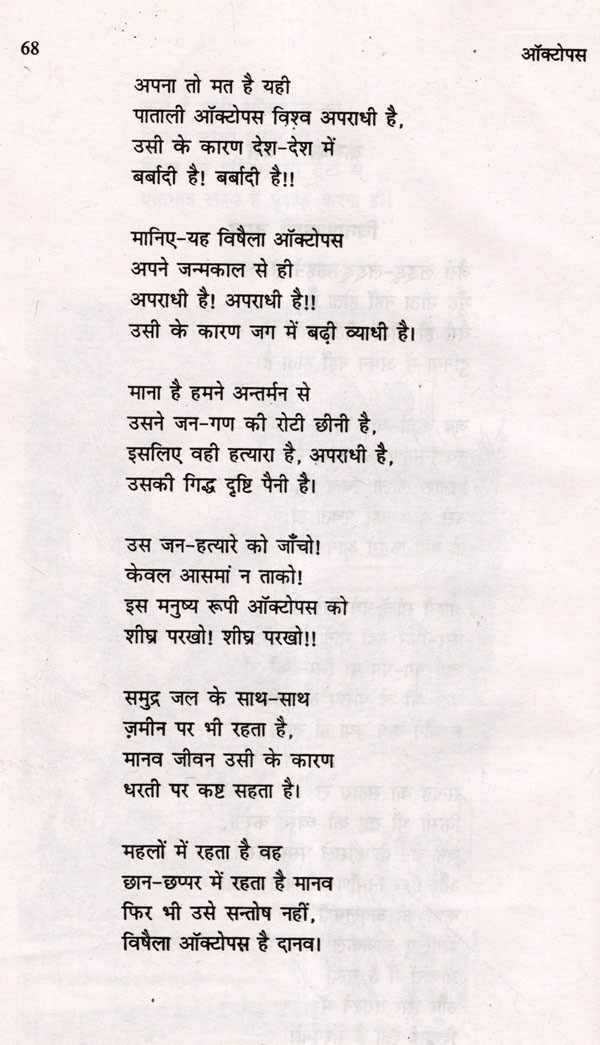 68
ऑक्टोपस
अपना तो मत है यही
पाताली ऑक्टोपस विश्व अपराधी है,
उसी के कारण देश-देश में
बर्बादी है! बर्बादी है!!
मानिए-यह विषैला ऑक्टोपस
अपने जन्मकाल से ही
अपराधी है! अपराधी है!!
उसी के कारण जग में बढ़ी व्याधी है।
माना है हमने अन्तर्मन से
उसने जन-गण की रोटी छीनी है,
इसलिए वही हत्यारा है, अपराधी है,
उसकी गिद्ध दृष्टि पैनी है।
उस जन-हत्यारे को जाँचो!
केवल आसमां न ताको!
इस मनुष्य रूपी ऑक्टोपस को
शीघ्र परखो! शीघ्र परखो!!
समुद्र जल के साथ-साथ
ज़मीन पर भी रहता है,
मानव जीवन उसी के कारण
धरती पर कष्ट सहता है।
महलों में रहता है वह
छान-छप्पर में रहता है मानव
फिर भी उसे सन्तोष नहीं,
विषैला ऑक्टोपस है दानव।